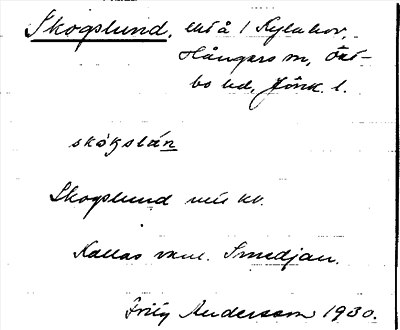 Skogslund, utå / Rylahov,
Hångers sn, Öst-
bo hd, Jönk. l.
skóksláṉ
Skogslund
Kallas vanl. Smedjan.
Fritz Andersson 1930.